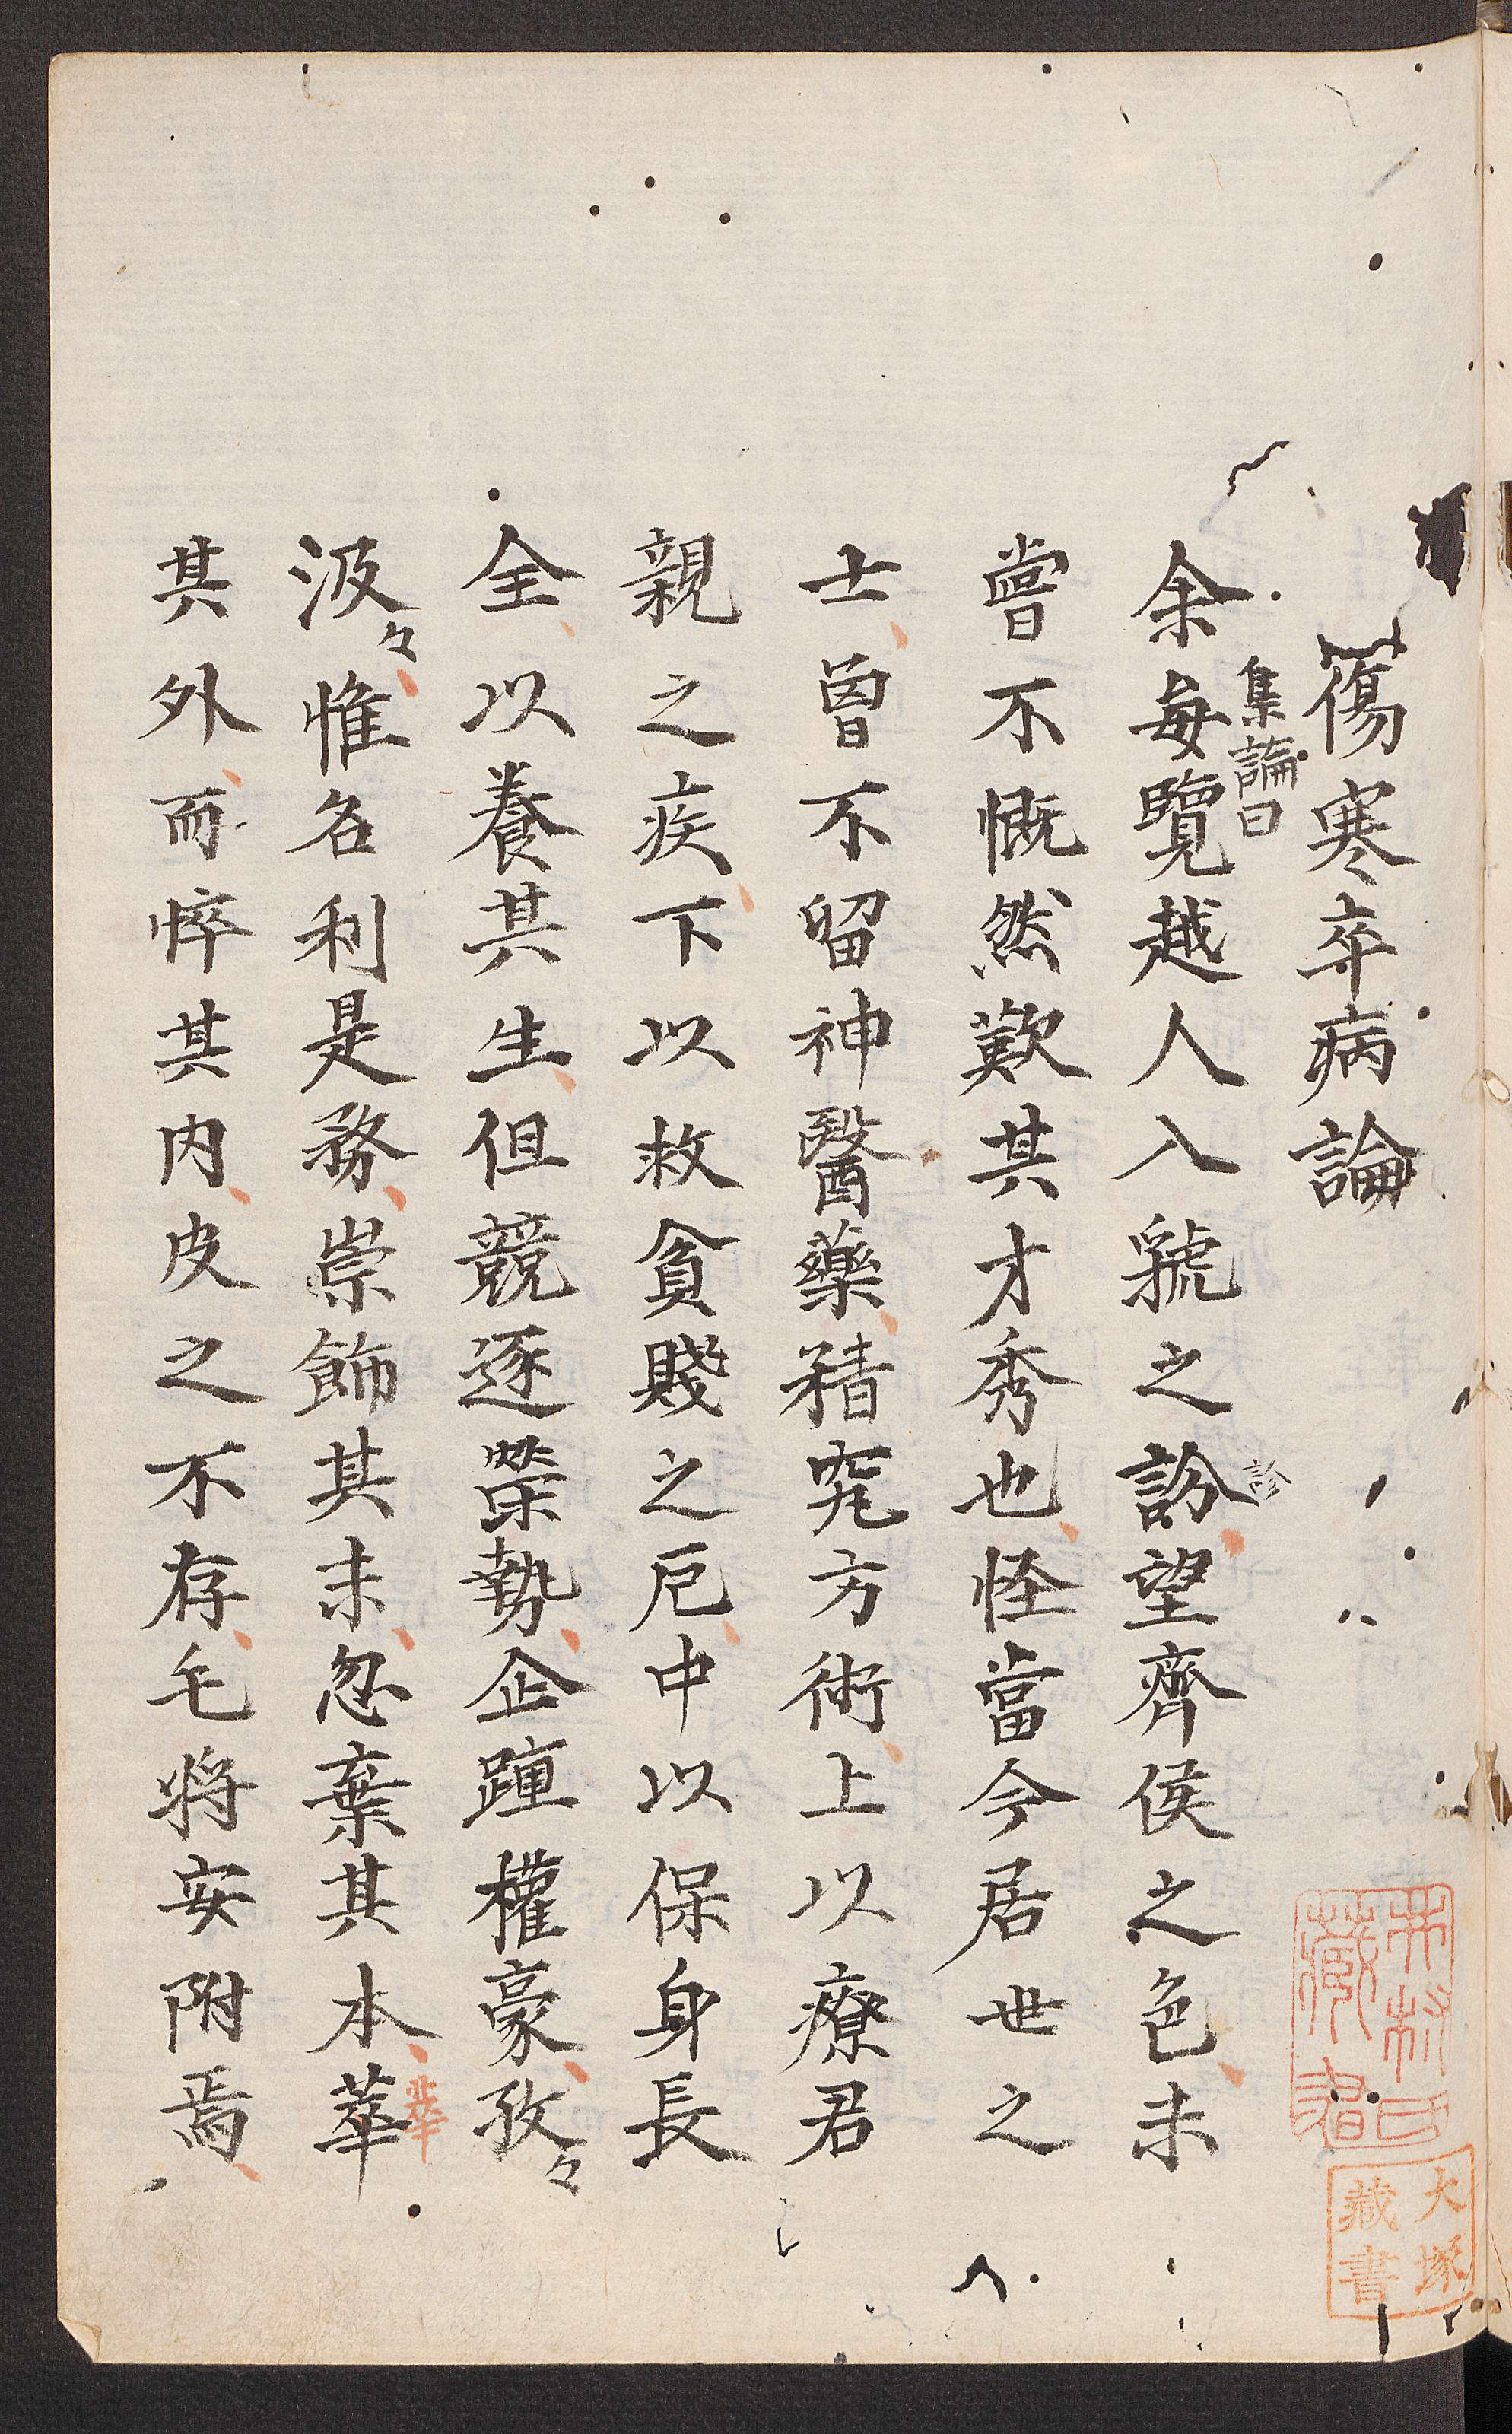 傷寒卒病論
集論曰
余每覽越人入虢之訡望齊侯之色未
診
嘗不慨然歎其才秀也怪當今居世之
士曾不留神醫藥精究方術上以療君
親之疾下以救貧賤之厄中以保身長
全以養其生但競逐榮勢企踵權豪孜々
汲々惟名利是務崇飾其末忽棄其本華
華
其外而悴其内皮之不存毛将安附焉
井村氏
藏書
大塚
藏書